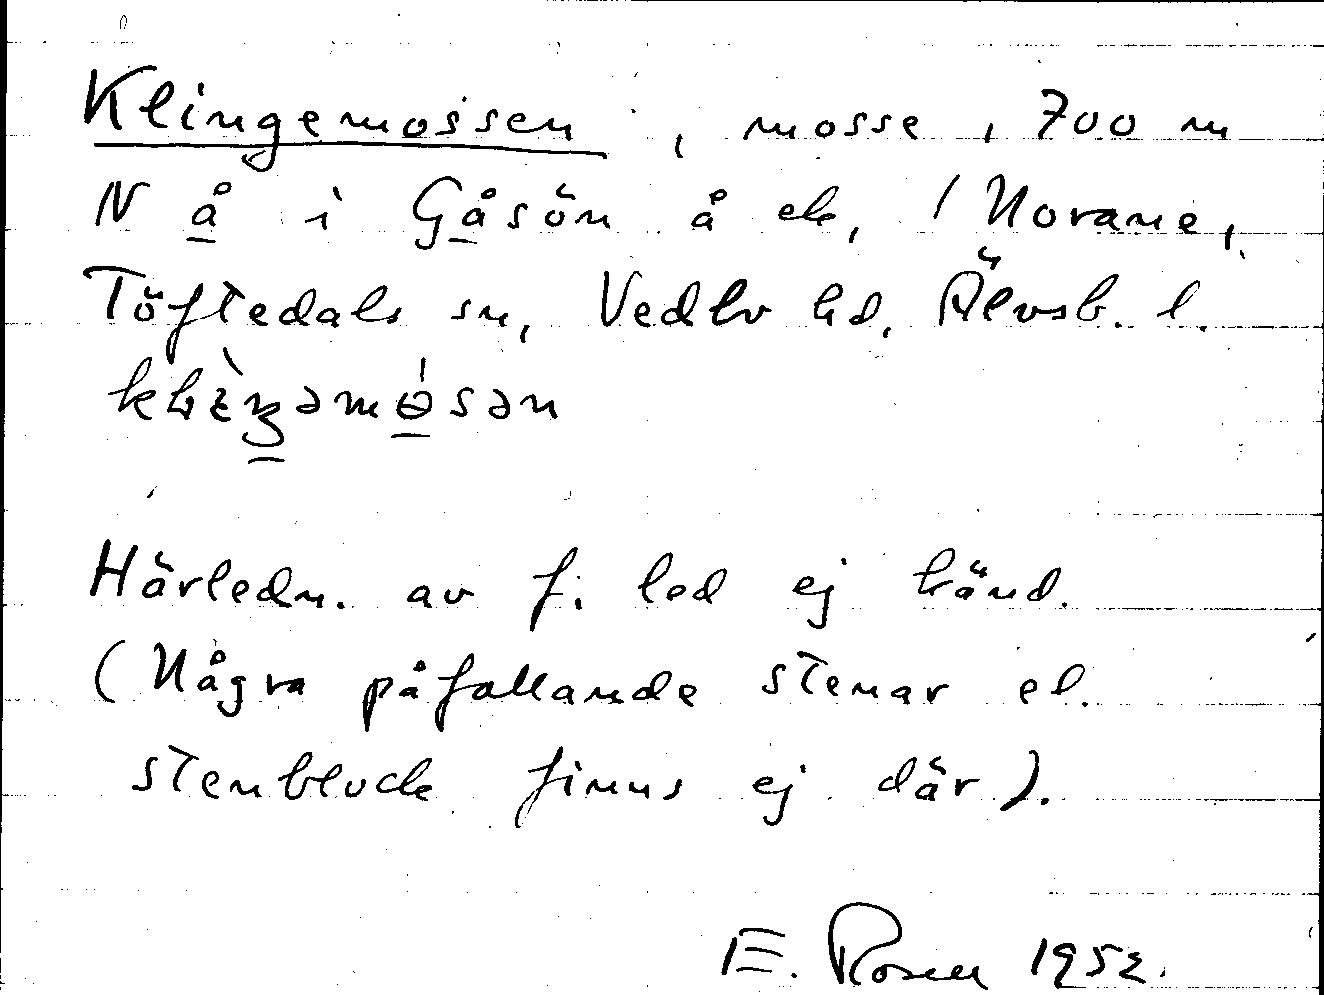 Klingemossen, mosse, 700 m
N å i Gåsön å ek, / Norane,
Töftedals sn, Vedbo hd. Älvsb. l.
Härledn. av f. led ej känd.
(Några påfallande stenar el.
stenblock finns ej där).
E. Rosell 1952.